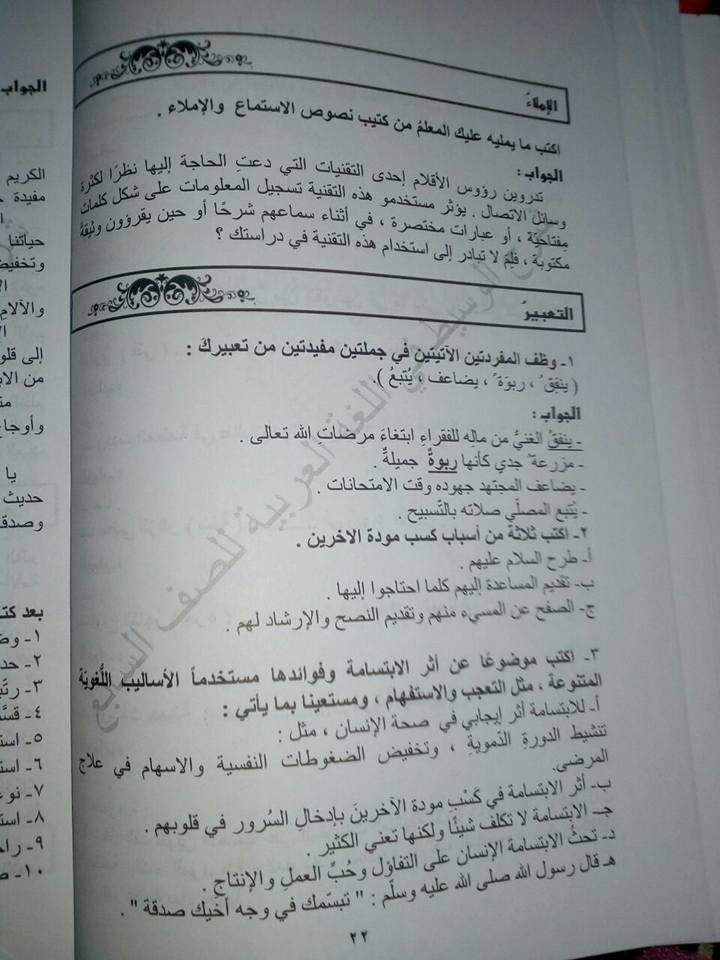 الإملاءُ
اكتب ما يمليه عليك المعلمُ من كتيب نصوص الاستماع والإملاء .
الجواب :
تدروين رؤوس الأقلام إحدى التقنيات التي دعتِ الحاجة إليها نظرًا لكثرة
وسائل الاتصال . يؤثر مستخدمو هذه التقنية تسجيل المعلومات على شكل كلمات
مفتاحيّة ، أو عبارات مختصرة ، في أثناء سماعهم شرحًا أو حين يقرؤون وثيقةً
مكتوبة ، فلِمَ لا تبادر إلى استخدام هذه التقنية في دراستك ؟
التعبيرُ
١- وظف المفردتين الآتيتين في جملتين مفيدتين من تعبيركَ :
( ينفِقُ ، ربوَة ، يضاعف ، يُتبعُ ).
الجواب :
- ينفقُ الغنيُّ من مالِه للفقراءِ ابتغاءَ مرضاتِ الله تعالى .
- مزرعةُ جدي كأنها ربوةٌ جميلةٌ .
- يضاعف المجتهد جهوده وقت الامتحانات .
- يُتبع المصلّي صلاته بالتّسبيح .
٢- اكتب ثلاثة من أسباب كسب مودة الاخرين .
أ- طرح السلام عليهم .
ب- تقديم المساعدة إليهم كلما احتاجوا إليها .
ج- الصفح عن المسيء منهم وتقديم النصح والإرشاد لهم .
٣- اكتب موضوعًا عن أثر الابتسامة وفوائدها مستخدماً الأساليب اللُّغويّة
المتنوعة ، مثل التعجب والاستفهام ، ومستعينا بما يأتي :
أ- للابتسامة أثر إيجابي في صحة الإنسان ، مثل :
تنشيط الدورةِ الدّمويةِ ، وتخفيض الضغوطات النفسية والاسهام في علاج
المرضى.
ب- أثر الابتسامة في كَسْبِ مودة الآخرينَ بإدخالِ السُرور في قلوبهم .
جـ- الابتسامة لا تكلف شيئًا ولكنها تعني الكثير .
د- تحثُ الابتسامة الإنسان على التفاؤل وحُبِّ العملِ والإنتاج .
هـ قال رسول الله صلى الله عليه وسلّم : " تبسّمك في وجه أخيك صدقة " .
٢٢
الجواب
الكريم
مفيدة
حياتنا
وتخفيض
والآلام
إلى قلو
من الاب
وأوجاع
يا
حديث
وصدقة
بعد كتا
١- وض
٢- حد
٣- رتّ
٤- قسّ
٥- است
٦- است
٧- نوع
٨- است
٩- راج
١٠- ص